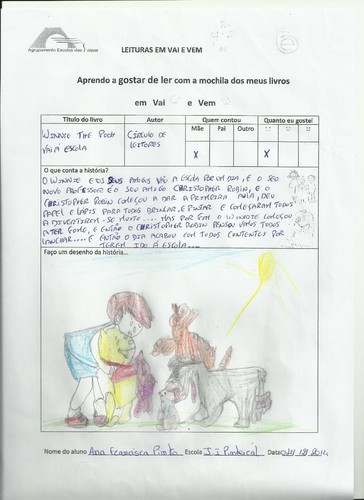 Agrupamento Escolas das Taipas
LEITURAS EM VAI E VEM
Aprendo a gostar de ler com a mochila dos meus livros
em Vai e Vem
Título do livro Autor Quem contou Quanto eu gostei
Mãe Pai Outro
WINNIE THE POOH VAI Á ESCOLA
CÍRCULO DE LEITORES
X X
O que conta a história?
O WINNIE E OS SEUS AMIGOS VÃO A ESCOLA POR UM DIA, E O SEU
NOVO PROFESSOR É O SEU AMIGO CHRISTOPHER ROBIN, E O
CHRISTOPHER ROBIN COMEÇOU A DAR A PRIMEIRA AULA, DEU
PAPEL E LÁPIS PARA TODOS BRINCAR, E PINTAR E COMEÇARAM TODOS
A DIVERTIREM-SE MUITO.... MAS POR FIM O WINNIE COMEÇOU
A TER FOME, E ENTÃO O CHRISTOPHER ROBIN PENSOU VAMOS TODOS
LANCHAR.... E ENTÃO O DIA ACABOU COM TODOS CONTENTES POR
TEREM IDO Á ESCOLA...
Faço um desenho da história...
Nome do aluno Ana Francisca Pinto Escola J.I Pinheiral Data